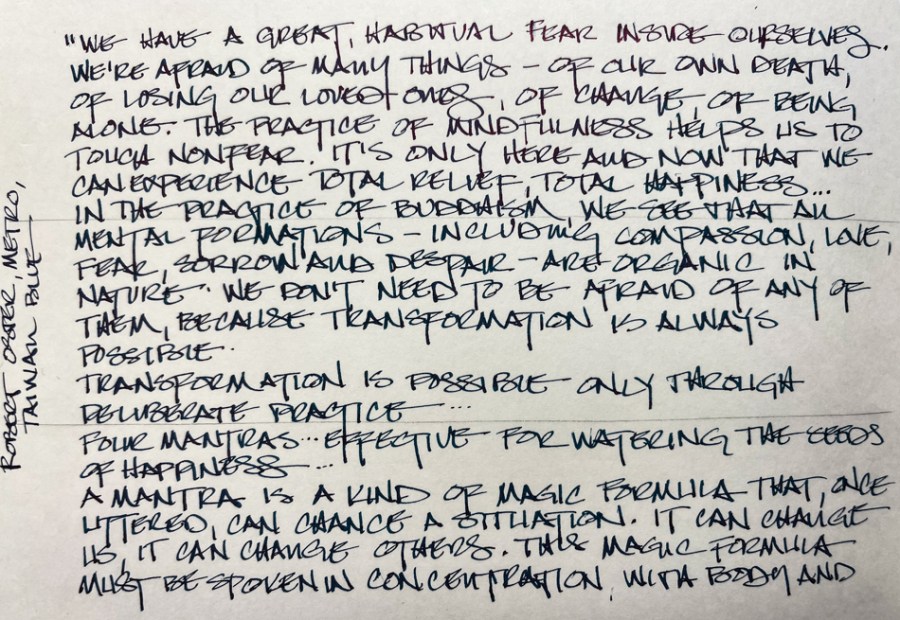 "WE HAVE A GREAT, HABITUAL FEAR INSIDE OURSELVES.
WE'RE AFRAID OF MANY THINGS - OF OUR OWN DEATH,
OF LOSING OUR LOVED ONES, OF CHANGE, OF BEING
ALONE. THE PRACTICE OF MINDFULNESS HELPS US TO
TOUCH NONFEAR. IT'S ONLY HERE AND NOW THAT WE
CAN EXPERIENCE TOTAL RELIEF, TOTAL HAPPINESS...
IN THE PRACTICE OF BUDDHISM, WE SEE THAT ALL
MENTAL FORMATIONS - INCLUDING COMPASSION, LOVE,
FEAR, SORROW AND DESPAIR - ARE ORGANIC IN
NATURE. WE DON'T NEED TO BE AFRAID OF ANY OF
THEM, BECAUSE TRANSFORMATION IS ALWAYS
POSSIBLE.
TRANSFORMATION IS POSSIBLE ONLY THROUGH
DELIBERATE PRACTICE ...
FOUR MANTRAS... EFFECTIVE FOR WATERING THE SEEDS
OF HAPPINESS ...
A MANTRA IS A KIND OF MAGIC FORMULA THAT, ONCE
UTTERED, CAN CHANCE A SITUATION. IT CAN CHANGE
US, IT CAN CHANGE OTHERS. THIS MAGIC FORMULA
MUST BE SPOKEN IN CONCENTRATION, WITH BODY AND
ROBERT OSTER, METRO,
TAIWAN BLUE